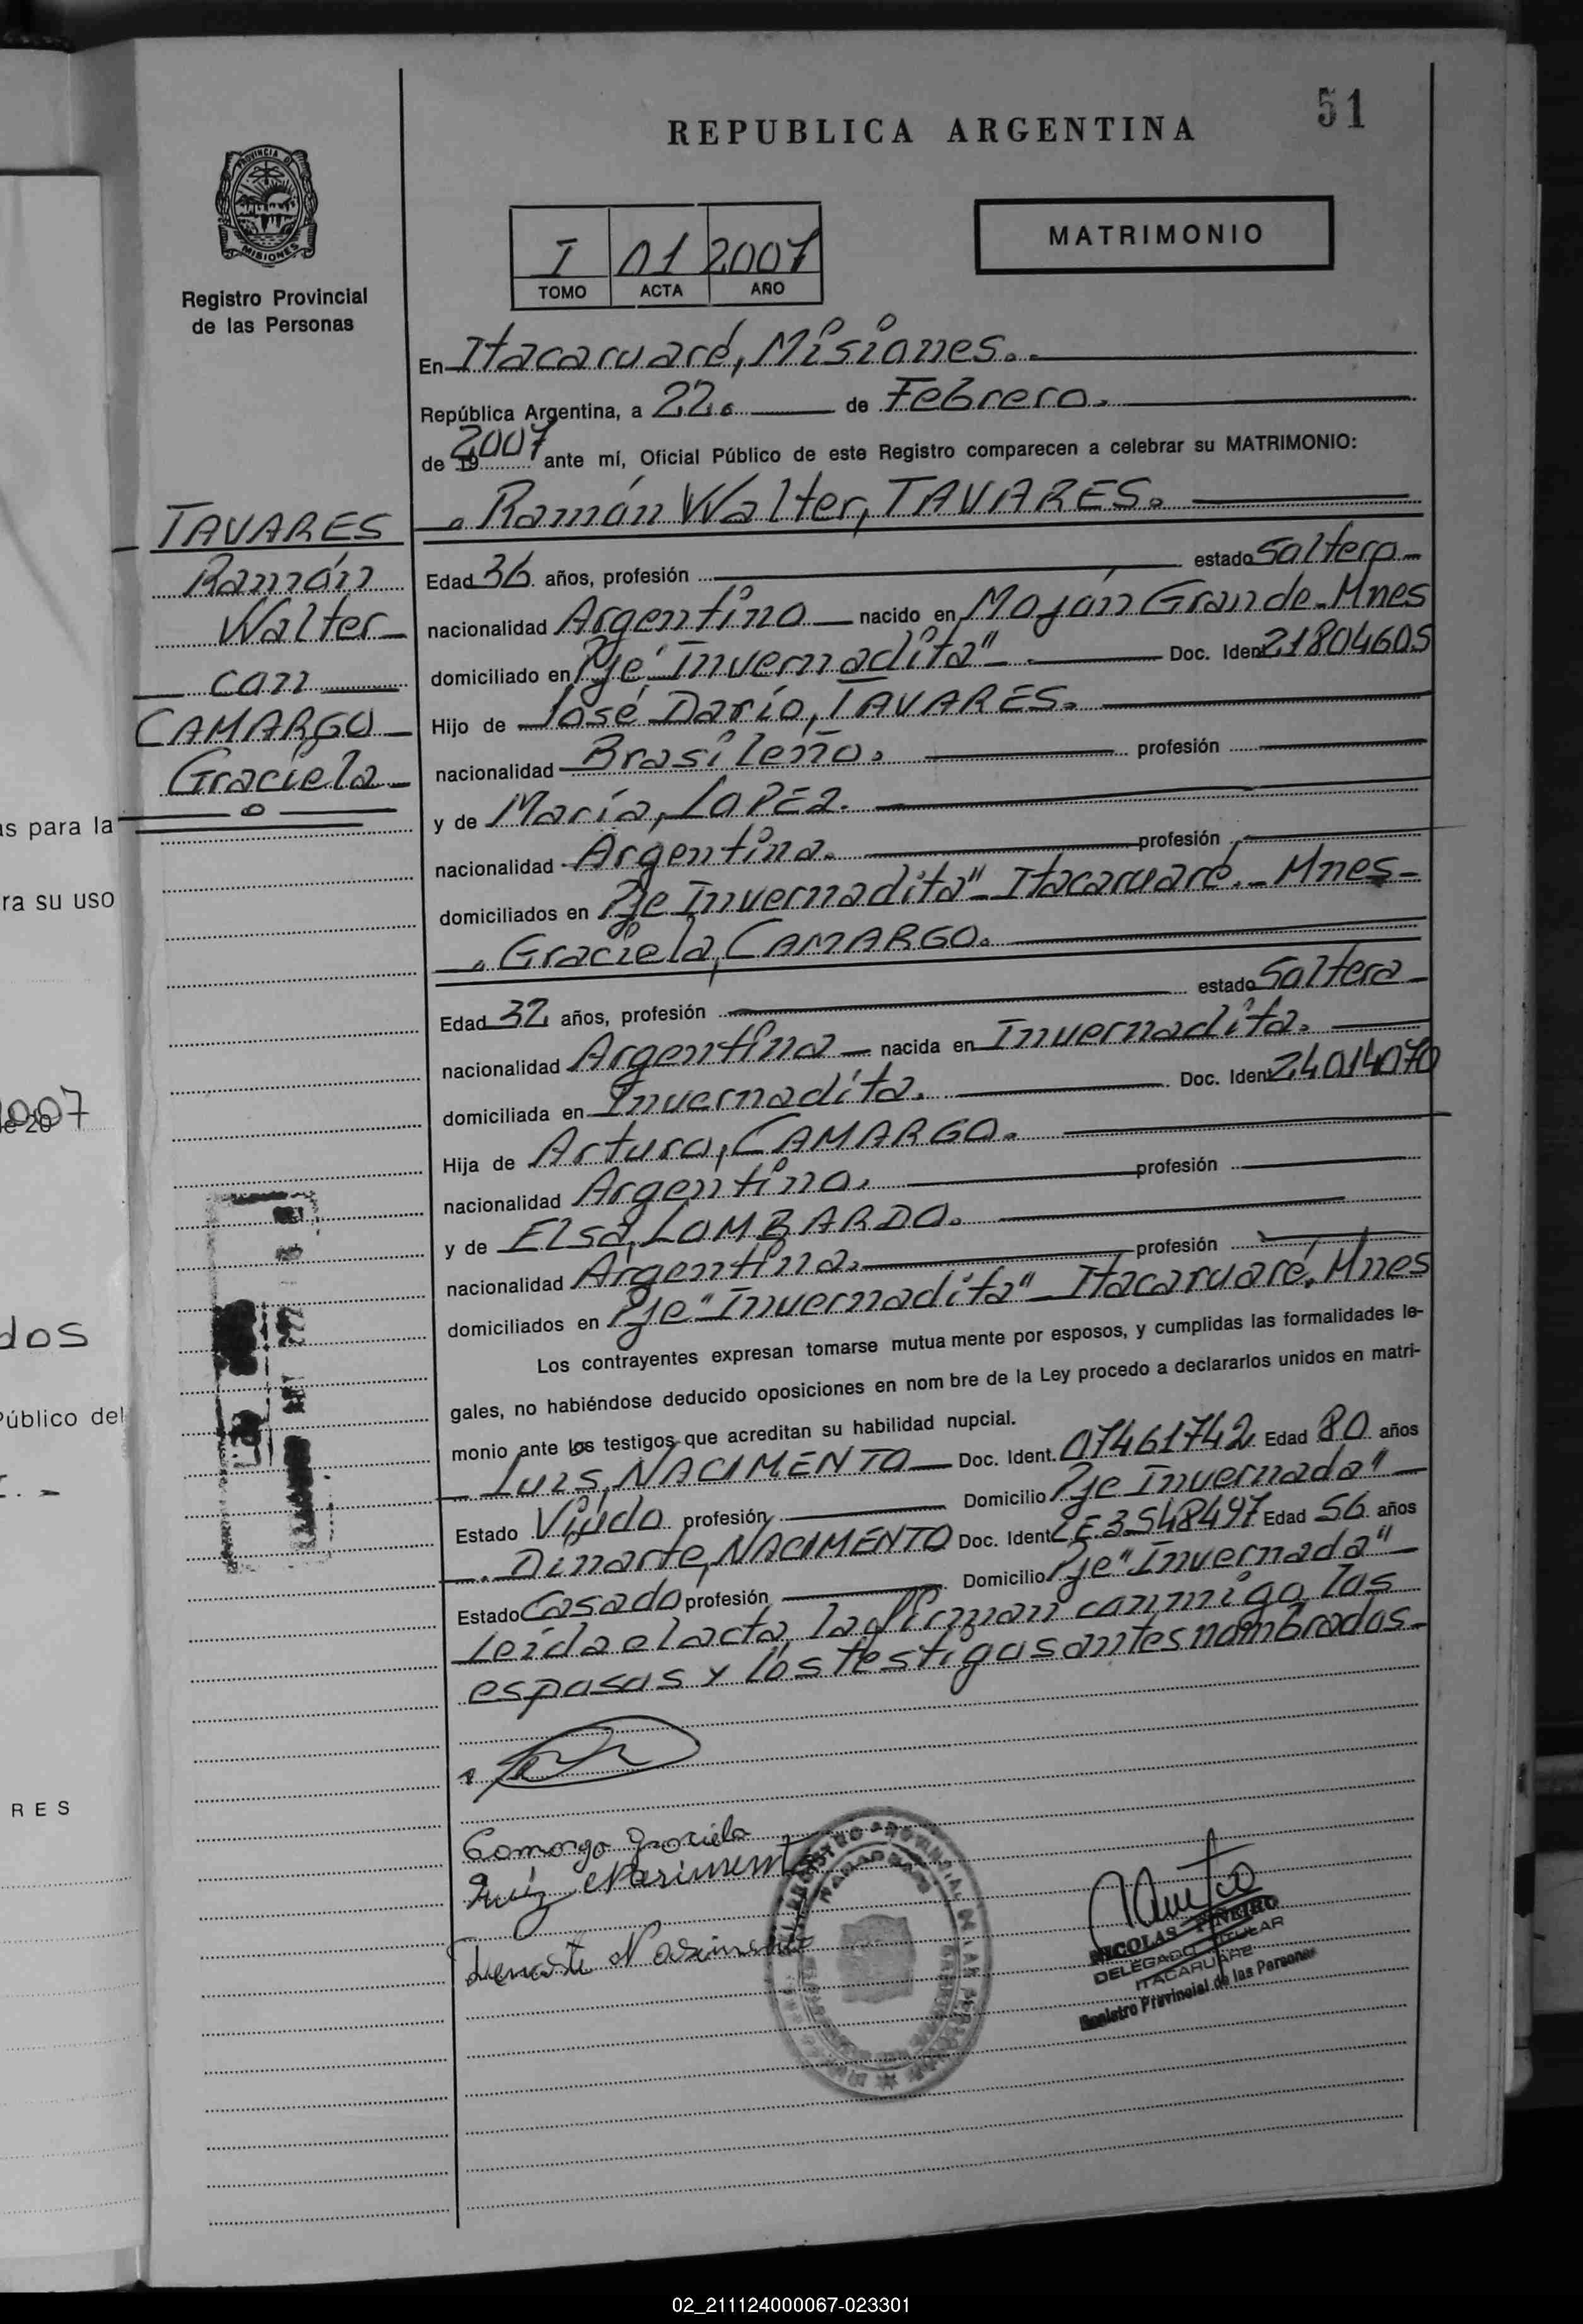 51
REPUBLICA ARGENTINA
PROVINCIA D
MISIONES
Registro Provincial
de las Personas
I 01 2007
TOMO ACTA AÑO
MATRIMONIO
En Itacaruaré, Misiones.
República Argentina, a 22. de Febrero.
de 19 2007 ante mí, Oficial Público de este Registro comparecen a celebrar su MATRIMONIO:
TAVARES
Ramón
Walter
con
CAMARGO
Graciela
Ramón Walter, TAVARES.
Edad 36 años, profesión estado Soltero
nacionalidad Argentino nacido en Mojón Grande-Mnes
domiciliado en Pje "Invernadita" Doc. Ident 21804605
Hijo de José Darío, TAVARES.
nacionalidad Brasileño. profesión
y de María, LOPEZ.
nacionalidad Argentina. profesión
domiciliados en Pje Invernadita" Itacaruaré.- Mnes-
Graciela, CAMARGO.
Edad 32 años, profesión estado Soltera
nacionalidad Argentina nacida en Invernadita.
domiciliada en Invernadita. Doc. Ident 24014070
Hija de Arturo, CAMARGO.
nacionalidad Argentino. profesión
y de Elsa, LOMBARDO.
nacionalidad Argentina. profesión
domiciliados en Pje "Invernadita" Itacaruaré, Mnes
Los contrayentes expresan tomarse mutua mente por esposos, y cumplidas las formalidades le-
gales, no habiéndose deducido oposiciones en nom bre de la Ley procedo a declararlos unidos en matri-
monio ante los testigos que acreditan su habilidad nupcial.
Luis, NACIMENTO Doc. Ident. 07461742 Edad 80 años
Estado Viudo profesión Domicilio Pje Invernada"
Dinarte, NACIMENTO Doc. Ident LE 3548497 Edad 56 años
Estado Casado profesión Domicilio Pje "Invernada"
Leída el acta, la firman conmigo, los
esposos y los testigos antes nombrados.
Camargo Graciela
Luiz Nasiment
Nasimento
NICOLAS PIÑEIRO
DELEGADO TITULAR
ITACARUARE
Registro Provincial de las Personas
as para la
ra su uso
2007
de 20
dos
Público del
RES
02_211124000067-023301